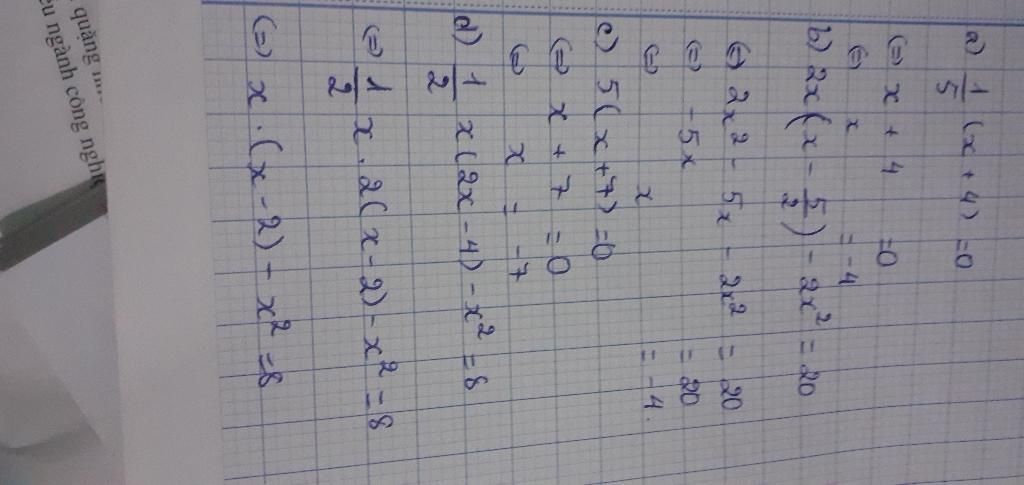 a) 1/5 (x + 4) = 0
(=) x + 4 = 0
(=) x = -4
b) 2x(x - 5/2) - 2x² = 20
(=) 2x² - 5x - 2x² = 20
(=) -5x = 20
(=) x = -4
c) 5(x + 7) = 0
(=) x + 7 = 0
(=) x = -7
d) 1/2 x(2x - 4) - x² = 8
(=) 1/2 x . 2(x - 2) - x² = 8
(=) x . (x - 2) - x² = 8
quặng
ngành công